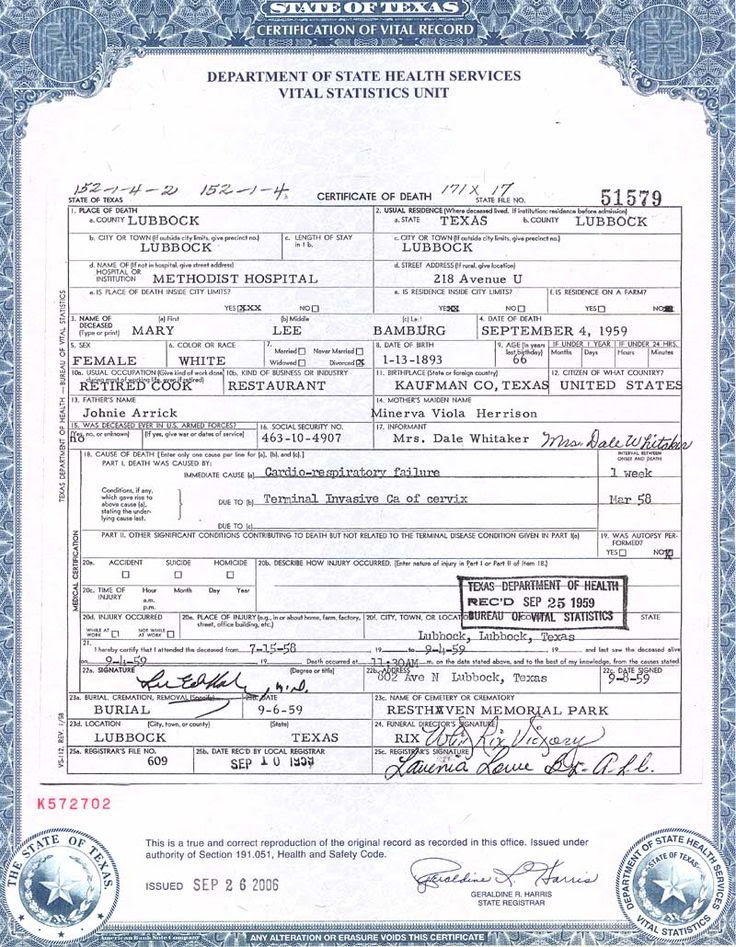 STATE OF TEXAS
CERTIFICATION OF VITAL RECORD
DEPARTMENT OF STATE HEALTH SERVICES
VITAL STATISTICS UNIT
152-1-4-2 152-1-4 171X 17
STATE OF TEXAS CERTIFICATE OF DEATH STATE FILE NO. 51579
1. PLACE OF DEATH 2. USUAL RESIDENCE (Where deceased lived. If institution: residence before admission)
a. COUNTY LUBBOCK a. STATE TEXAS b. COUNTY LUBBOCK
b. CITY OR TOWN (If outside city limits, give precinct no.) c. LENGTH OF STAY in 1b. c. CITY OR TOWN (If outside city limits, give precinct no.)
LUBBOCK LUBBOCK
d. NAME OF (If not in hospital, give street address) HOSPITAL OR INSTITUTION METHODIST HOSPITAL d. STREET ADDRESS (If rural, give location)
218 Avenue U
e. IS PLACE OF DEATH INSIDE CITY LIMITS? e. IS RESIDENCE INSIDE CITY LIMITS? f. IS RESIDENCE ON A FARM?
YES XXX NO YES XX NO YES NO
3. NAME OF DECEASED (Type or print) (a) First (b) Middle (c) Last 4. DATE OF DEATH
MARY LEE BAMBURG SEPTEMBER 4, 1959
5. SEX 6. COLOR OR RACE 7. Married Never Married 8. DATE OF BIRTH 9. AGE (In years last birthday) IF UNDER 1 YEAR IF UNDER 24 HRS.
Months Days Hours Minutes
FEMALE WHITE Widowed Divorced X 1-13-1893 66
10a. USUAL OCCUPATION (Give kind of work done during most of working life, even if retired) 10b. KIND OF BUSINESS OR INDUSTRY 11. BIRTHPLACE (State or foreign country) 12. CITIZEN OF WHAT COUNTRY?
RETIRED COOK RESTAURANT KAUFMAN CO, TEXAS UNITED STATES
13. FATHER'S NAME 14. MOTHER'S MAIDEN NAME
Johnie Arrick Minerva Viola Herrison
15. WAS DECEASED EVER IN U.S. ARMED FORCES? 16. SOCIAL SECURITY NO. 17. INFORMANT
(Yes, no, or unknown) (If yes, give war or dates of service)
no 463-10-4907 Mrs. Dale Whitaker Mrs. Dale Whitaker
18. CAUSE OF DEATH [Enter only one cause per line for (a), (b), and (c).] INTERVAL BETWEEN ONSET AND DEATH
PART I. DEATH WAS CAUSED BY:
IMMEDIATE CAUSE (a) Cardio-respiratory failure 1 week
Conditions, if any, which gave rise to above cause (a), stating the underlying cause last.
DUE TO (b) Terminal Invasive Ca of cervix Mar 58
DUE TO (c)
PART II. OTHER SIGNIFICANT CONDITIONS CONTRIBUTING TO DEATH BUT NOT RELATED TO THE TERMINAL DISEASE CONDITION GIVEN IN PART I(a) 19. WAS AUTOPSY PERFORMED?
YES NO X
20a. ACCIDENT SUICIDE HOMICIDE 20b. DESCRIBE HOW INJURY OCCURRED. (Enter nature of injury in Part I or Part II of Item 18.)
20c. TIME OF INJURY Hour Month Day Year
a.m.
p.m.
TEXAS DEPARTMENT OF HEALTH
REC'D SEP 25 1959
BUREAU OF VITAL STATISTICS
20d. INJURY OCCURRED 20e. PLACE OF INJURY (e.g., in or about home, farm, factory, street, office building, etc.) 20f. CITY, TOWN, OR LOCATION COUNTY STATE
WHILE AT WORK NOT WHILE AT WORK Lubbock, Lubbock, Texas
21. I hereby certify that I attended the deceased from 7-15-58 19 to 9-4-59 19 and last saw the deceased alive
on 9-4-59 19 Death occurred at 11:30AM m. on the date stated above, and to the best of my knowledge, from the causes stated.
22a. SIGNATURE (Degree or title) 22b. ADDRESS 22c. DATE SIGNED
M.D. 802 Ave N Lubbock, Texas 9-8-59
23a. BURIAL, CREMATION, REMOVAL (Specify) 23b. DATE 23c. NAME OF CEMETERY OR CREMATORY
BURIAL 9-6-59 RESTHAVEN MEMORIAL PARK
23d. LOCATION (City, town, or county) (State) 24. FUNERAL DIRECTOR'S SIGNATURE
LUBBOCK TEXAS RIX Rix
25a. REGISTRAR'S FILE NO. 25b. DATE REC'D BY LOCAL REGISTRAR 25c. REGISTRAR'S SIGNATURE
609 SEP 10 1959 Lavenia Lowe
TEXAS DEPARTMENT OF HEALTH—BUREAU OF VITAL STATISTICS
MEDICAL CERTIFICATION
VS-112, REV. 1/58
K572702
This is a true and correct reproduction of the original record as recorded in this office. Issued under
authority of Section 191.051, Health and Safety Code.
ISSUED SEP 26 2006
Geraldine R. Harris
GERALDINE R. HARRIS
STATE REGISTRAR
THE STATE OF TEXAS
DEPARTMENT OF STATE HEALTH SERVICES
STATE OF TEXAS
VITAL STATISTICS
American Bank Note Company
ANY ALTERATION OR ERASURE VOIDS THIS CERTIFICATE